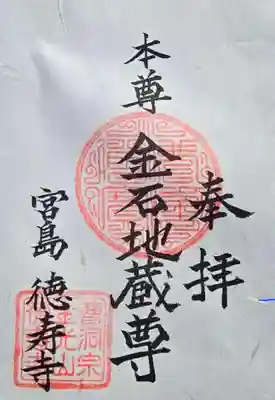 奉拝
本尊
金石地蔵尊
宮島 徳寿寺
曹洞宗
金光山